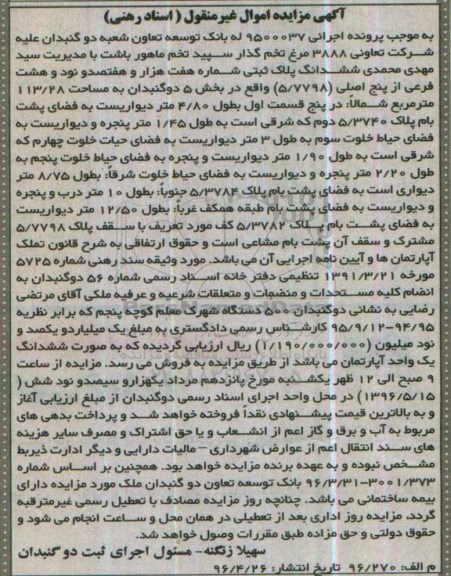 آگهی مزایده اموال غیرمنقول ( اسناد رهنی)
به موجب پرونده اجرائی ۹۵۰۰۰۳۷ له بانک توسعه تعاون شعبه دو گنبدان علیه
شرکت تعاونی ۳۸۸۸ مرغ تخم گذار سپید تخم ماهور باشت با مدیریت سید
مهدی محمدی ششدانگ پلاک ثبتی شماره هفت هزار و هفتصدو نود و هشت
فرعی از پنج اصلی (۵/۷۷۹۸) واقع در بخش ۵ دوگنبدان به مساحت ۱۱۳/۲۸
مترمربع شمالاً: در پنج قسمت اول بطول ۴/۸۰ متر دیواریست به فضای پشت
بام پلاک ۵/۳۷۴۰ دوم که شرقی است به طول ۱/۴۵ متر پنجره و دیواریست به
فضای حیاط خلوت سوم به طول ۳ متر دیواریست به فضای حیات خلوت چهارم که
شرقی است به طول ۱/۹۰ متر دیواریست و پنجره به فضای حیاط خلوت پنجم به
طول ۲/۲۰ متر پنجره و دیواریست به فضای حیاط خلوت شرقاً: بطول ۸/۷۵ متر
دیواری است به فضای پشت بام پلاک ۵/۳۷۸۴ جنوباً: بطول ۱۰ متر درب و پنجره
و دیواریست به فضای پشت بام طبقه همکف غرباً: بطول ۱۲/۵۰ متر دیواریست
به فضای پشت بام پلاک ۵/۳۷۸۲ کف مورد تعریف با سقف پلاک ۵/۷۷۹۸
مشترک و سقف آن پشت بام مشاعی است و حقوق ارتفاقی به شرح قانون تملک
آپارتمان ها و آیین نامه اجرایی آن می باشد. مورد وثیقه سند رهنی شماره ۵۷۲۵
مورخه ۱۳۹۱/۳/۲۱ تنظیمی دفتر خانه اسناد رسمی شماره ۵۶ دوگنبدان به
انضام کلیه مستحدات و منضمات و متعلقات شرعیه و عرفیه ملکی آقای مرتضی
رضایی به نشانی دوگنبدان ۵۰۰ دستگاه شهرک معلم کوچه پنجم که برابر نظریه
۹۵/۹/۱۲-۹۴/۹۵ کارشناس رسمی دادگستری به مبلغ یک میلیاردو یکصد و
نود میلیون (۱/۱۹۰/۰۰۰/۰۰۰) ریال ارزیابی گردیده که به صورت ششدانگ
یک واحد آپارتمان می باشد از طریق مزایده به فروش می رسد. مزایده از ساعت
۹ صبح الی ۱۲ ظهر یکشنبه مورخ پانزدهم مرداد یکهزارو سیصدو نود شش (
۱۳۹۶/۵/۱۵) در محل واحد اجرای اسناد رسمی دوگنبدان از مبلغ ارزیابی آغاز
و به بالاترین قیمت پیشنهادی نقداً فروخته خواهد شد و پرداخت بدهی های
مربوط به آب و برق و گاز اعم از انشعاب و یا حق اشتراک و مصرف سایر هزینه
های سند انتقال اعم از عوارض شهرداری – مالیات دارایی و دیگر ادارت ذیربط
مشخص نبوده و به عهده برنده مزایده خواهد بود. همچنین بر اساس شماره
۹۶/۳/۳۱-۳۰۰۱/۳۷۳ بانک توسعه تعاون دو گنبدان ملک مورد مزایده دارای
بیمه ساختمانی می باشد. چنانچه روز مزایده مصادف با تعطیل رسمی غیرمترقبه
گردد، مزایده روز اداری بعد از تعطیلی در همان محل و ساعت انجام می شود و
حقوق دولتی و حق مزاده طبق مقررات وصول خواهد شد.
سهیلا زنگنه- مسئول اجرای ثبت دو گنبدان
م الف: ۹۶/۲۷۰ تاریخ انتشار: ۹۶/۴/۲۶